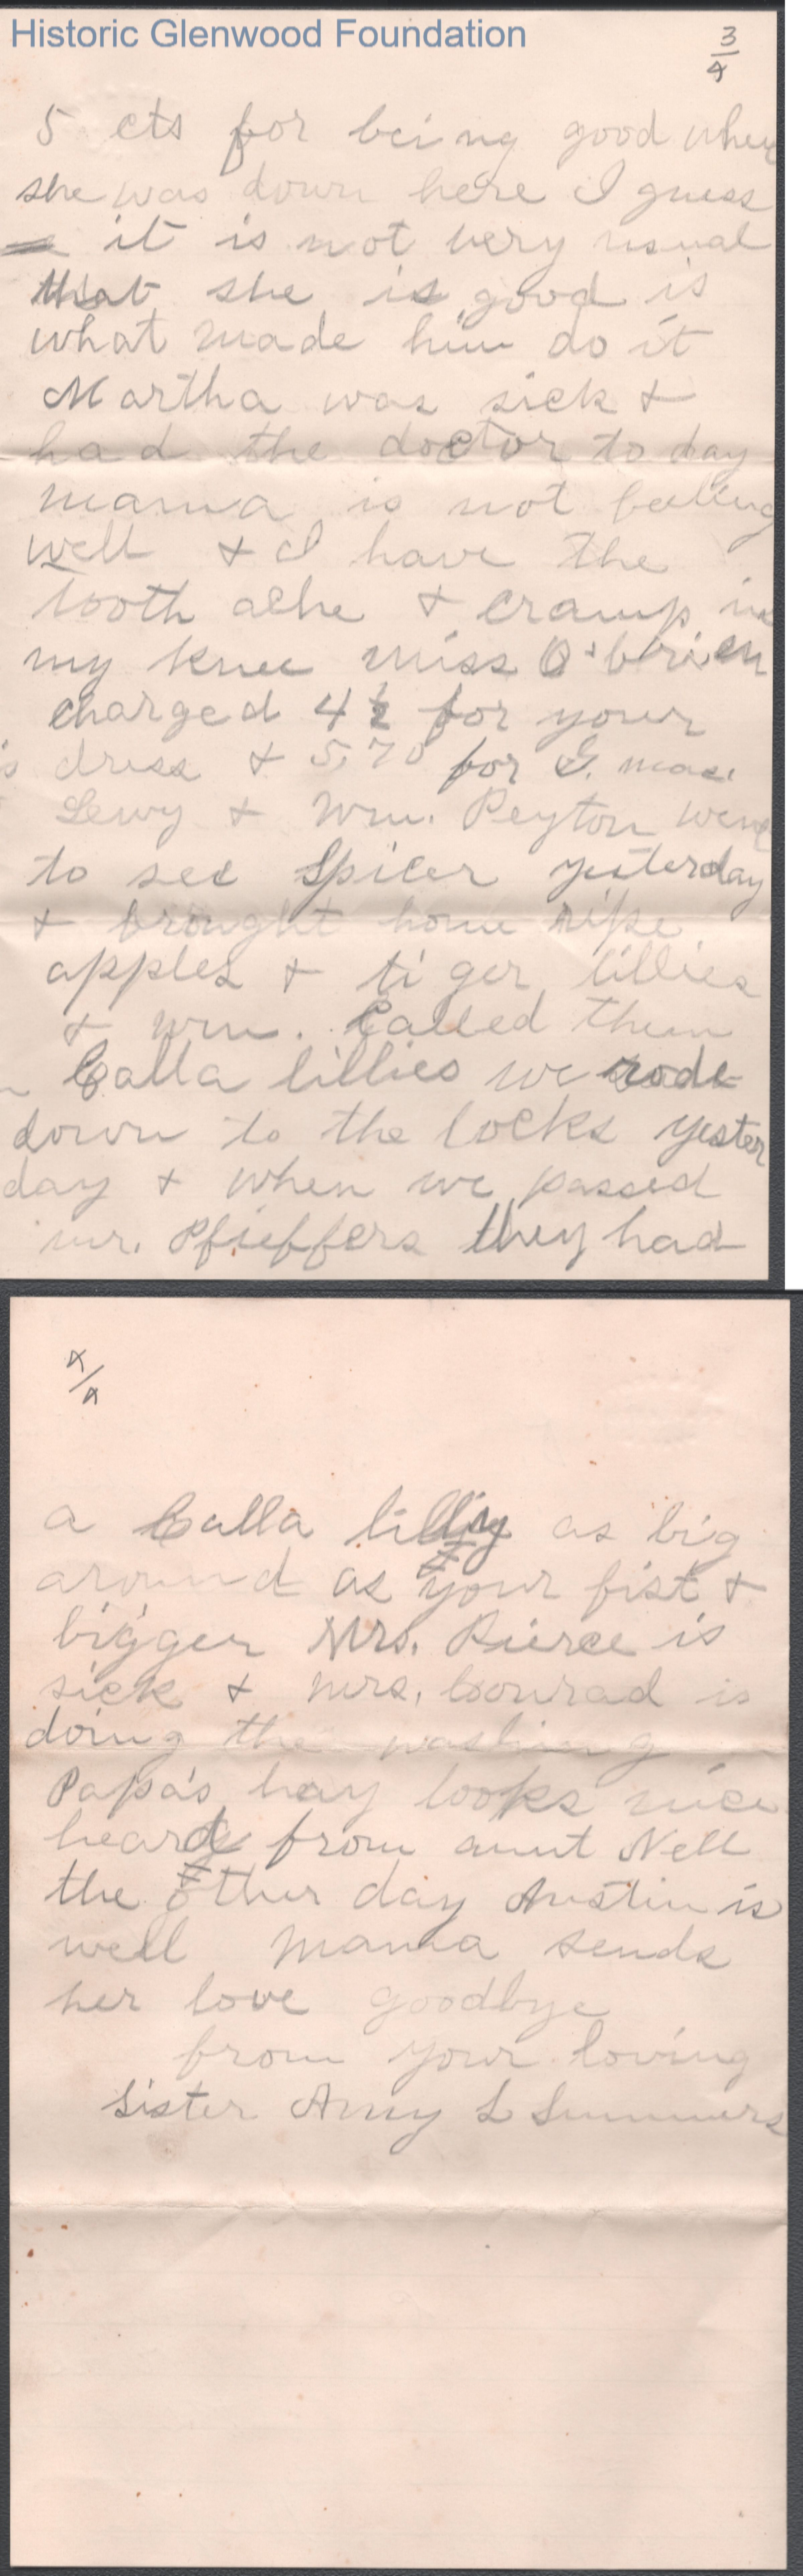 Historic Glenwood Foundation
3/4
5 cts for being good when
she was down here I guess
it is not very usual
that she is good is
what made him do it
Martha was sick &
had the doctor to day
mama is not feeling
well & I have the
tooth ache & cramp in
my knee miss O'brien
charged 4 1/2 for your
dress & 5,70 for G. mas.
Lewy & Wm. Peyton went
to see Spicer yesterday
& brought home ripe
apples & tiger lillies
& wm. Called them
Calla lillies we rode
down to the locks yester
day & when we passed
mr. Pfieffers they had
4/4
a Calla lilly as big
around as your fist &
bigger Mrs. Pierce is
sick & mrs. Conrad is
doing the washing
Papa's hay looks nice
heard from aunt Nell
the other day Austin is
well Mama sends
her love goodbye
from your loving
sister Amy L Summers